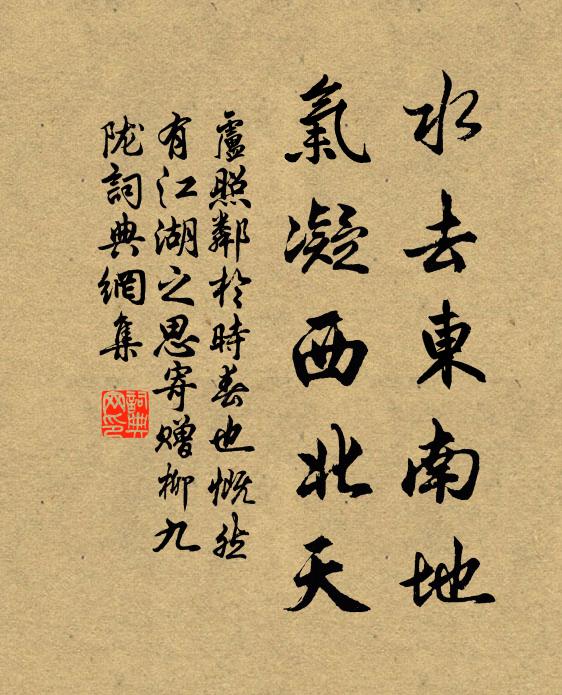 水去東南地
氣凝西北天
盧照鄰於時春也慨然
有江湖之思寄贈柳九
隴詞典網集
詞典網印